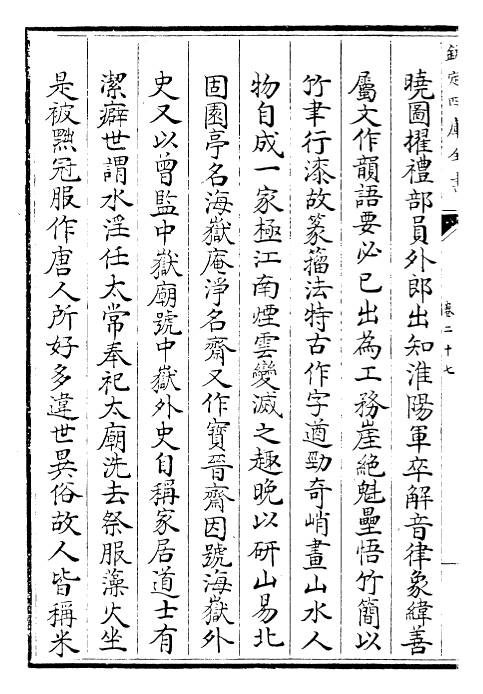 欽定四庫全書
卷二十七
曉圖擢禮部員外郎出知淮陽軍卒解音律象緯善
屬文作韻語要必已出為工務崖絶魁壘悟竹簡以
竹聿行漆故篆籀法特古作字遒勁奇峭畫山水人
物自成一家極江南煙雲變滅之趣晚以研山易北
固園亭名海嶽庵淨名齋又作寳晉齋因號海嶽外
史又以曾監中嶽廟號中嶽外史自稱家居道士有
潔癖世謂水淫任太常奉祀太廟洗去祭服藻火坐
是被黜冠服作唐人所好多違世異俗故人皆稱米